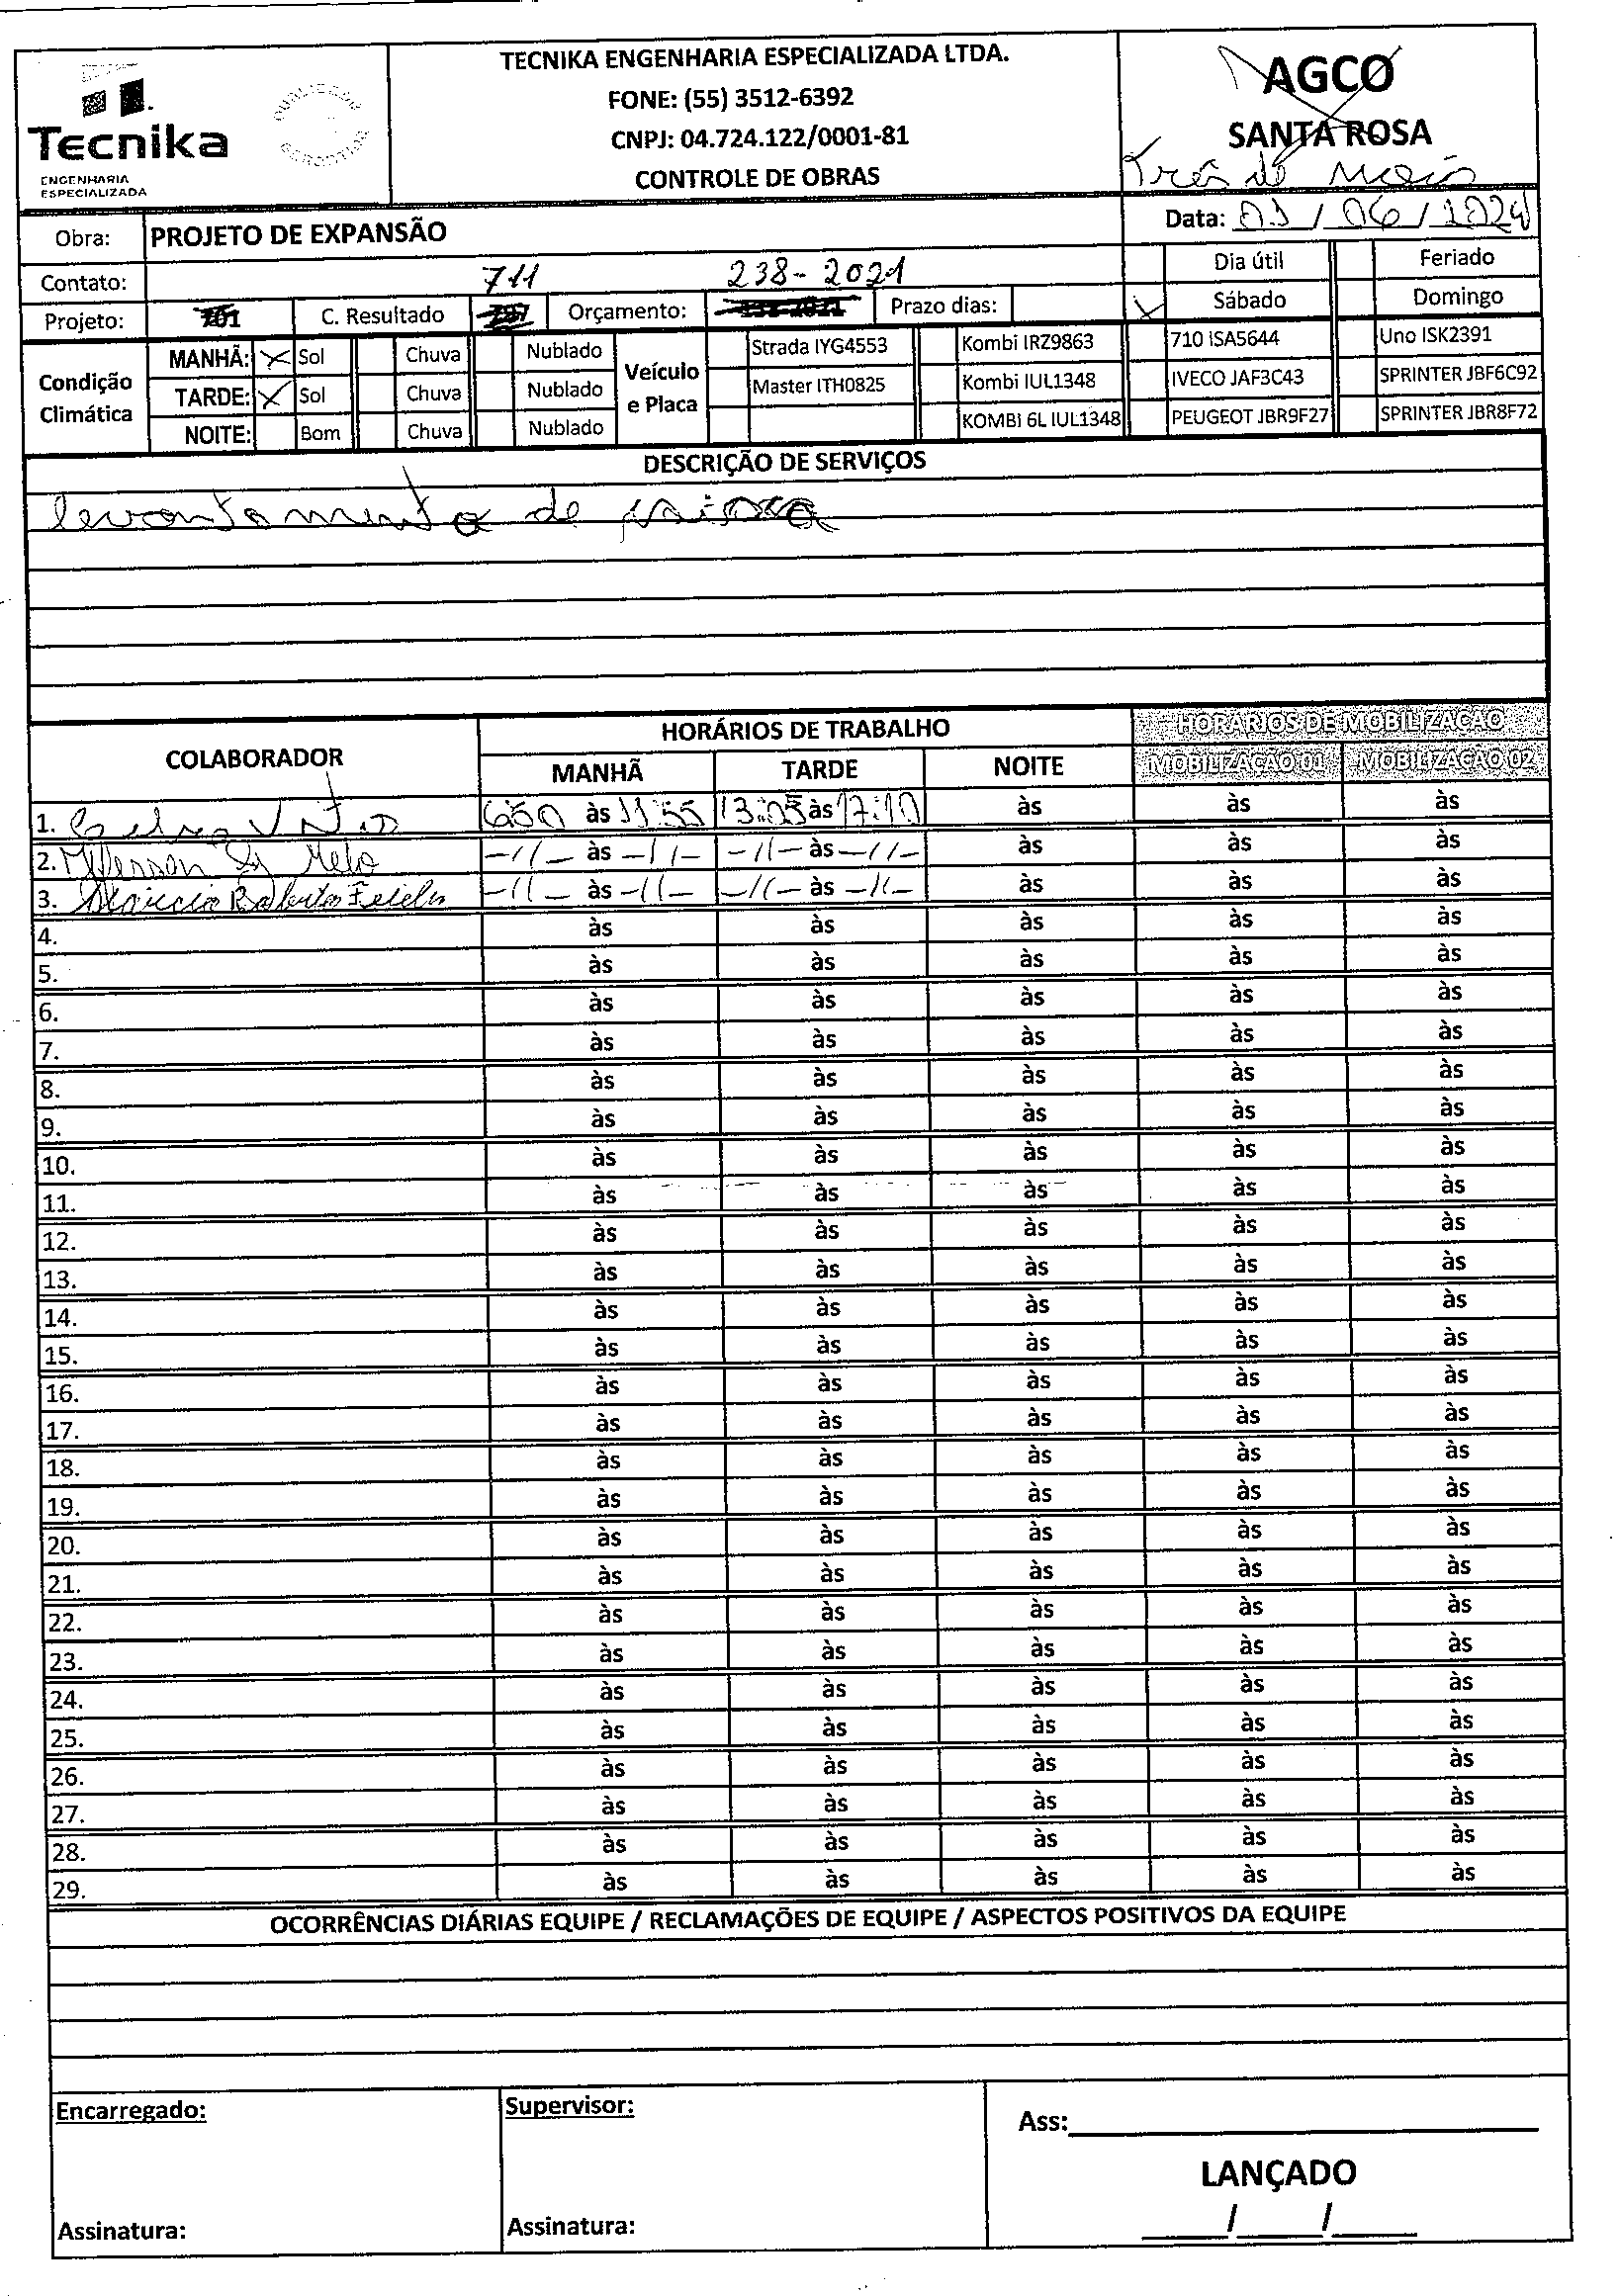 Tecnika
ENGENHARIA
ESPECIALIZADA
TECNIKA ENGENHARIA ESPECIALIZADA LTDA.
FONE: (55) 3512-6392
CNPJ: 04.724.122/0001-81
CONTROLE DE OBRAS
AGCO
SANTA ROSA
Três de Maio
Data: 01/06/2024
Obra: PROJETO DE EXPANSÃO
Dia útil Feriado
Contato:
711 238-2021
Projeto: 701 C. Resultado Orçamento: Prazo dias: X Sábado Domingo
Condição Climática
MANHÃ: X Sol Chuva Nublado
TARDE: X Sol Chuva Nublado
NOITE: Bom Chuva Nublado
Veículo e Placa
Strada IYG4553 Kombi IRZ9863 710 ISA5644 Uno ISK2391
Master ITH0825 Kombi IUL1348 IVECO JAF3C43 SPRINTER JBF6C92
KOMBI 6L IUL1348 PEUGEOT JBR9F27 SPRINTER JBR8F72
DESCRIÇÃO DE SERVIÇOS
levantamento de
COLABORADOR HORÁRIOS DE TRABALHO HORÁRIOS DE MOBILIZAÇÃO
MANHÃ TARDE NOITE MOBILIZAÇÃO 01 MOBILIZAÇÃO 02
1. 6:50 às 11:55 13:05 às 17:10 às às às
2. Jefferson Melo -//- às -//- -//- às -//- às às às
3. Marcio Roberto -//- às -//- -//- às -//- às às às
4. às às às às às
5. às às às às às
6. às às às às às
7. às às às às às
8. às às às às às
9. às às às às às
10. às às às às às
11. às às às às às
12. às às às às às
13. às às às às às
14. às às às às às
15. às às às às às
16. às às às às às
17. às às às às às
18. às às às às às
19. às às às às às
20. às às às às às
21. às às às às às
22. às às às às às
23. às às às às às
24. às às às às às
25. às às às às às
26. às às às às às
27. às às às às às
28. às às às às às
29. às às às às às
OCORRÊNCIAS DIÁRIAS EQUIPE / RECLAMAÇÕES DE EQUIPE / ASPECTOS POSITIVOS DA EQUIPE
Encarregado:
Supervisor:
Ass:
LANÇADO
Assinatura:
Assinatura:
___/___/___